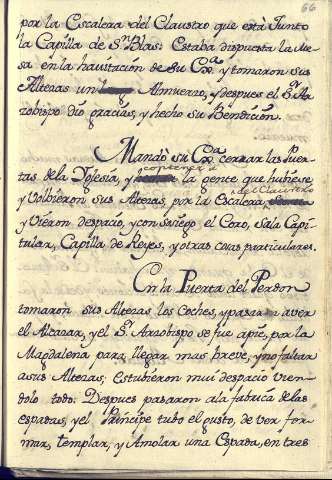 66
por la Escalera del Claustro que està Junto
la Capilla de Sn. Blas: Estaba dispuesta la Me-
sa en la havitación de Su Exa. y tomaron sus
Altezas un Almuerzo, y despues el Sr. Ar-
zobispo dio gracias, y hecho su Bendicion.
Mandò su Exa. cerrar las Puer-
tas de la Yglesia, y contener a la gente que hubiese,
y Volbieron sus Altezas, por la Escalera del Claustro
y Vieron despacio, y con sosiego el Coro, Sala Capi-
tular, Capilla de Reyes, y otras cosas particulares.
En la Puerta del Perdon
tomaron sus Altezas los Coches, y pasaron a ver
el Alcazar, y el Sr. Arzobispo se fue apie, por la
Magdalena para llegar mas breve, y no faltar
a sus Altezas, Estubieron mui despacio vien-
dolo todo: Despues pasaron ala fabrica de las
espadas, y el Principe tubo el gusto, de ver for-
mar, templar, y Amolar una Espada, en tres